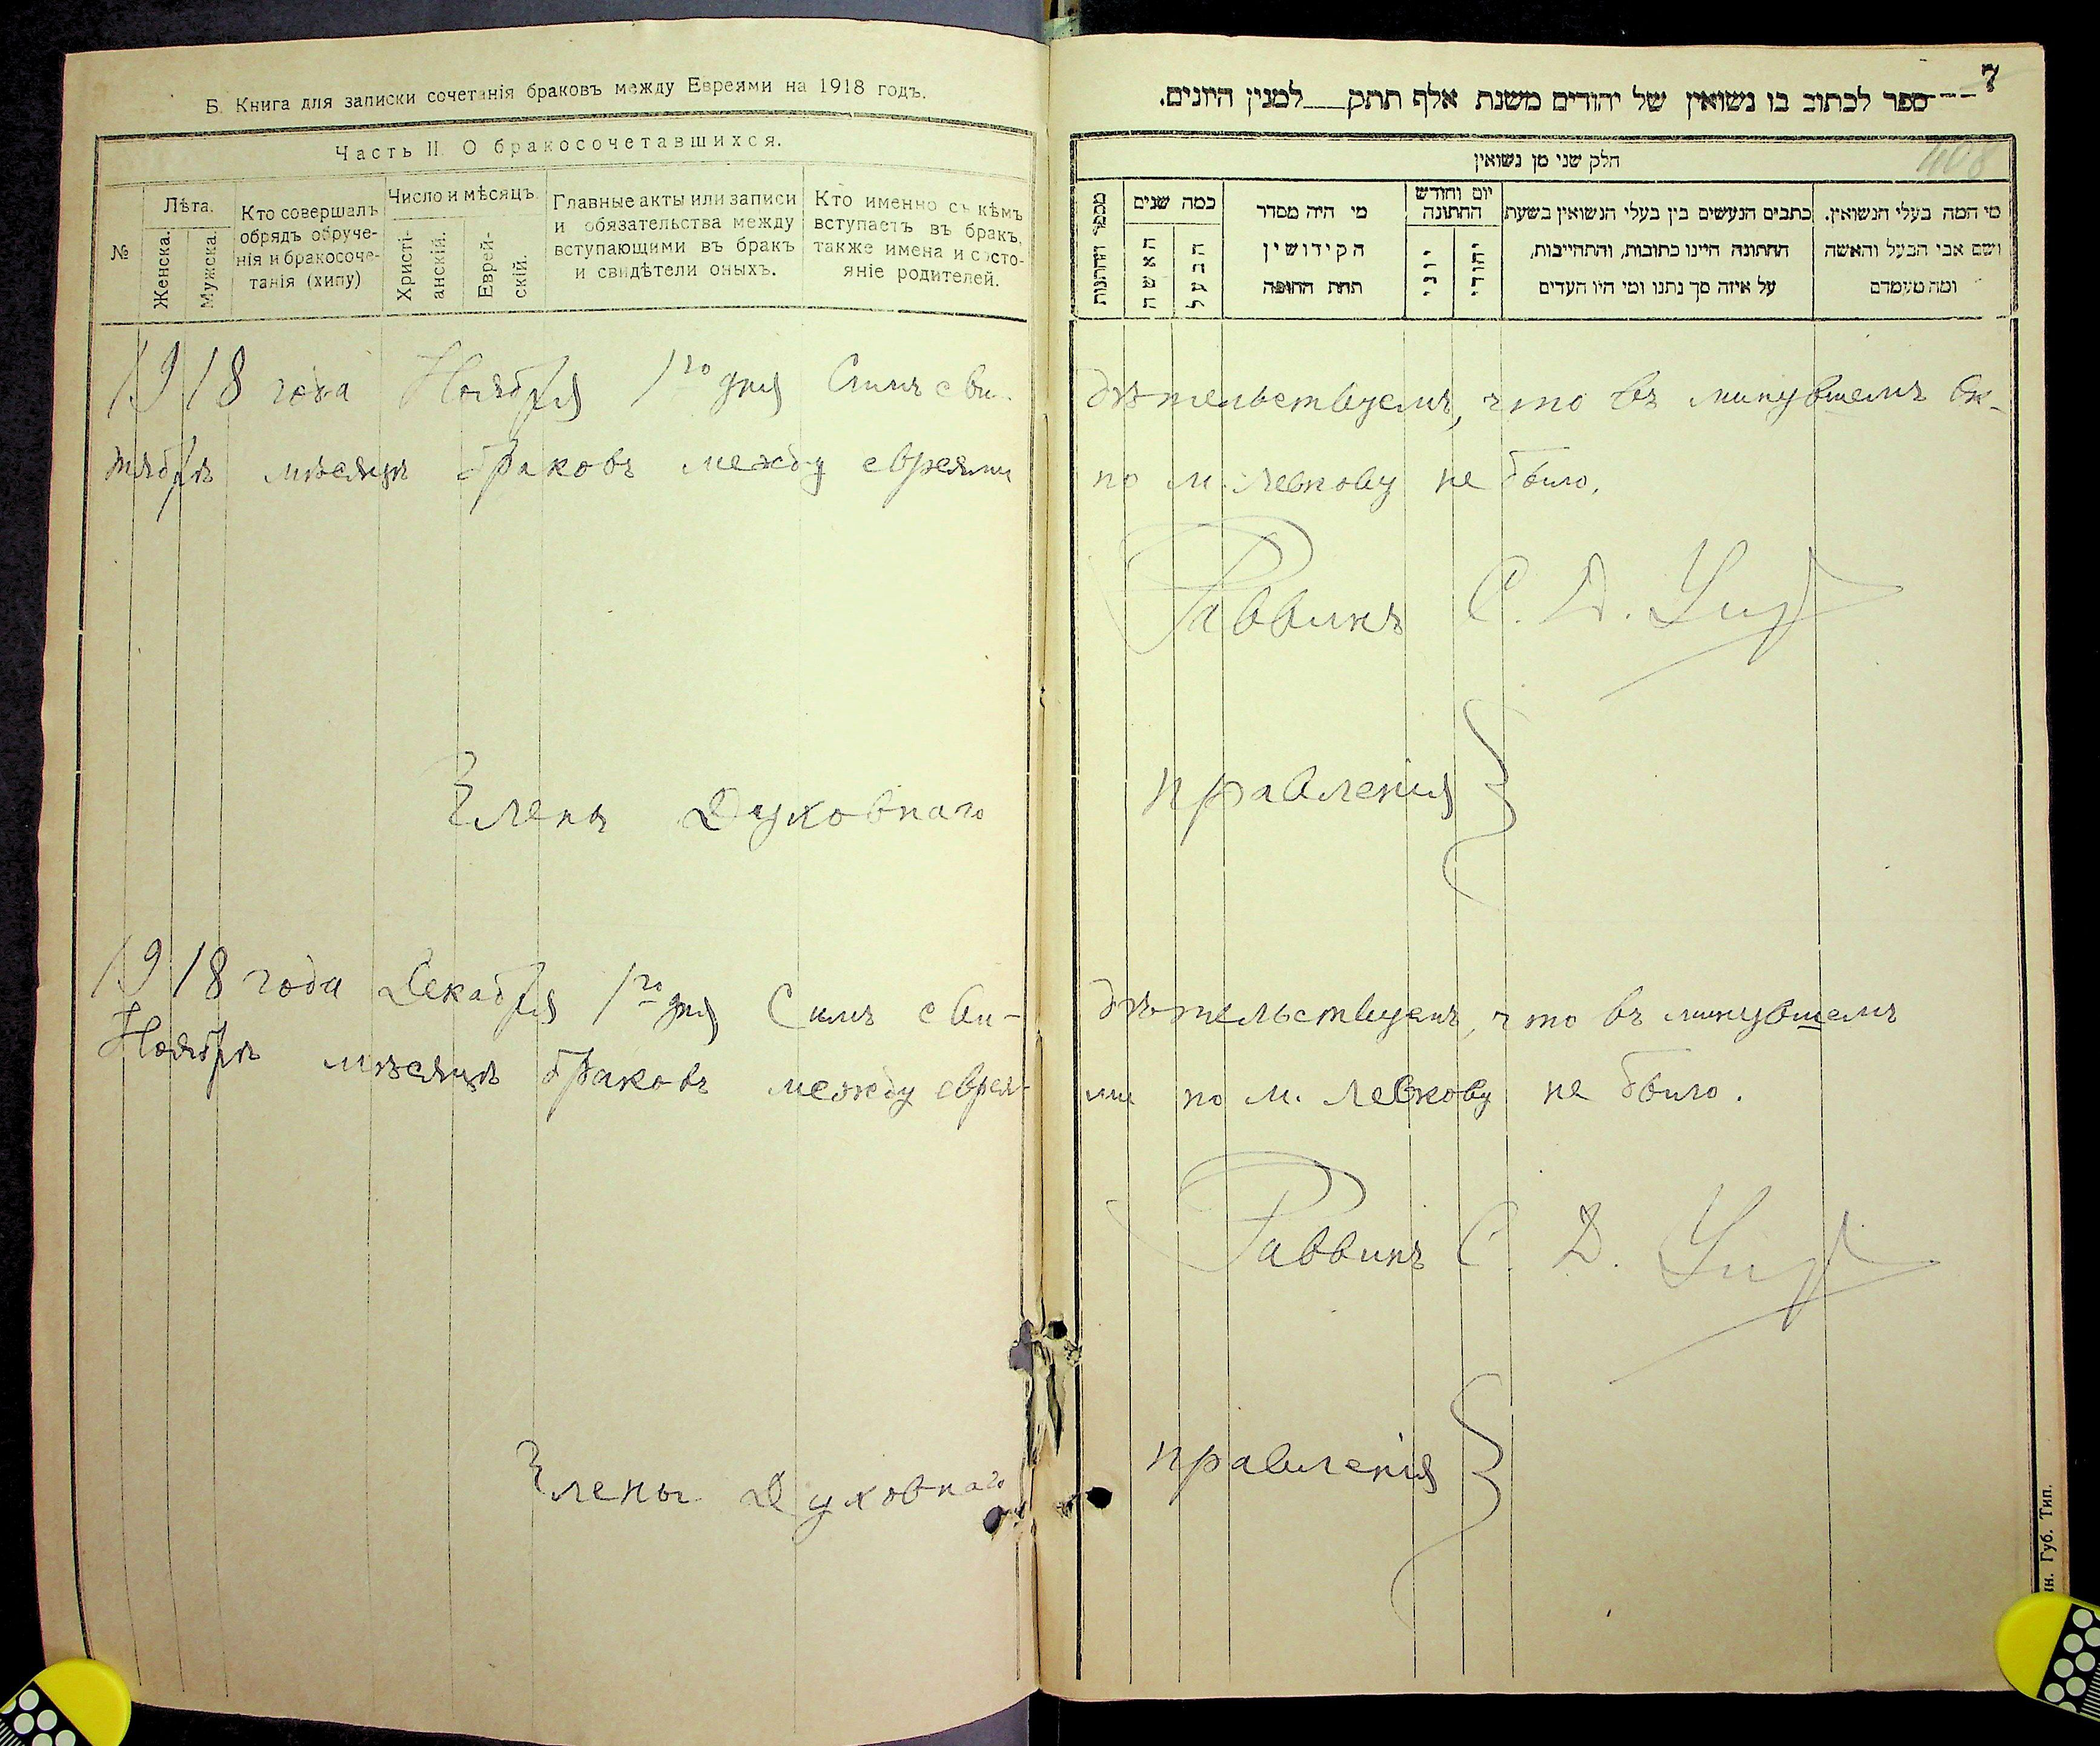 Б. Книга для записки сочетанія браковъ между Евреями на 1918 годъ.
Часть II. О бракосочетавшихся.
№
Лѣта.
Женска.
Мужска.
Кто совершалъ
обрядъ обруче-
нія и бракосоче-
танія (хипу)
Число и мѣсяцъ.
Христі-
анскій.
Еврей-
скій.
Главные акты или записи
и обязательства между
вступающими въ бракъ
и свидѣтели оныхъ.
Кто именно съ кѣмъ
вступаетъ въ бракъ,
также имена и состо-
яніе родителей.
1918 года Ноября 1го дня Симъ сви-
тябрѣ мѣсяцѣ браковъ между евреями
Члены Духовнаго
1918 года Декабря 1го дня Симъ сви-
Ноябрѣ мѣсяцѣ браковъ между еврея-
Члены Духовнаго
7
ספר לכתוב בו נשואין של יהודים משנת אלף תתק___למנין היונים.
408
חלק שני מן נשואין
מי המה בעלי הנשואין.
ושם אבי הבעל והאשה
ומה מעמדם
כתבים הנעשים בין בעלי הנשואין בשעת
החתונה היינו כתובות, והתחייבות,
על איזה סך נתנו ומי היו העדים
יום וחודש
החתונה
יהודי
יוני
מי היה מסדר
הקידושין
תחת החופה
כמה שנים
הבעל
האשה
מספר החתונות
дѣтельствуемъ, что въ минувшемъ Ок-
по м. Левкову не было.
Раввинъ С. Д.
правленія
дѣтельствуемъ, что въ минувшемъ
ми по м. Левкову не было.
Раввинъ С. Д.
правленія
Губ. Тип.